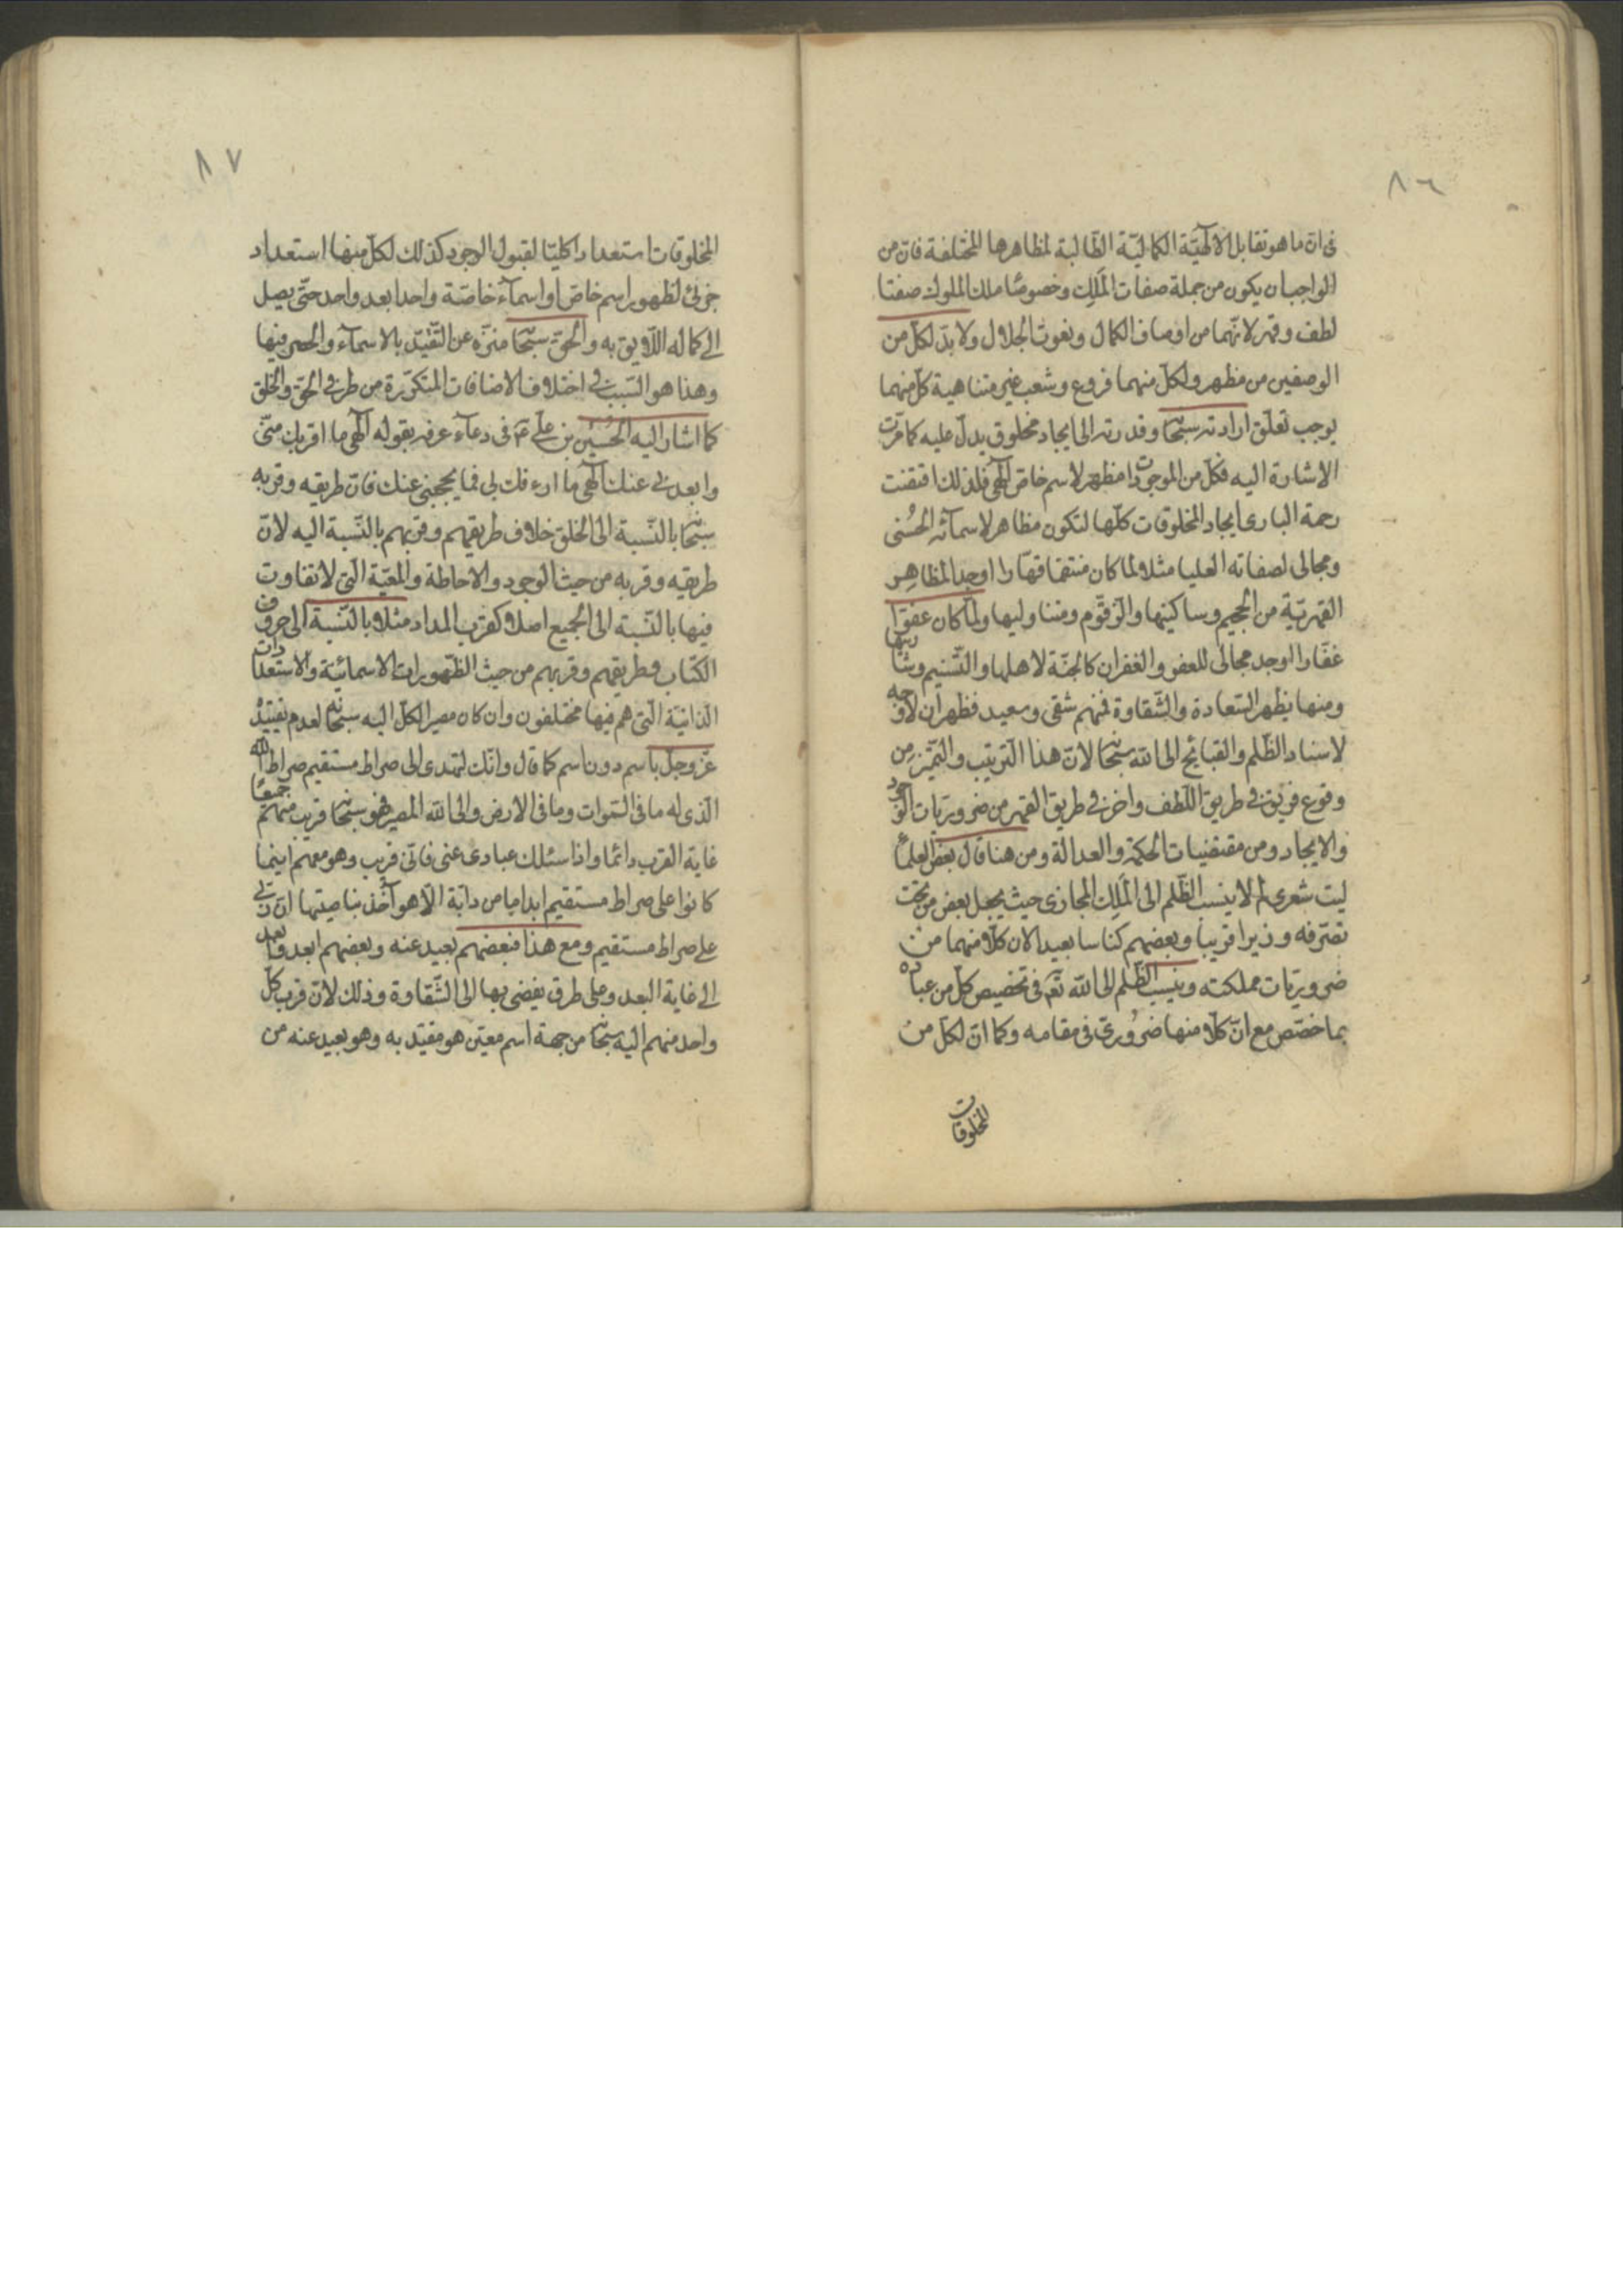 ٨٦
فى ان ما هو تقابل الالهيّة الكماليّة الطّالبة لمظاهرها المختلفة فان من
الواجب ان يكون من جملة صفات المَلِك وخصوصًا ملك الملوك صفتا
لطف وقهر لانّهما من اوصاف الكمال ونعوت الجلال ولا بدّ لكلّ من
الوصفين من مظهر ولكلّ منهما فروع وشعب غير متناهية كلّ منهما
يوجب تعلّق ارادته سبحا وقدرته الى ايجاد مخلوق يدلّ عليه كما مرّت
الاشارة اليه فكلّ من الموجودات مظهر لاسم خاصّ الهى فلذلك اقتضت
رحمة البارى ايجاد المخلوقات كلّها لتكون مظاهر لاسمائه الحُسنى
ومجالى لصفاته العليا مثلا لما كان منتقما قهّارا اوجد المظاهِر
القهريّة من الجحيم وساكنيها والزقّوم ومتناوليها ولمّا كان عفوّا
غفّارا اوجد مجالى للعفو والغفران كالجنّة لاهلها والتّسنيم وشاربيها
ومنها يظهر السّعادة والشّقاوة فمنهم شقى وسعيد فظهر ان لا وجه
لاسناد الظّلم والقبائح الى الله سبحا لانّ هذا الترتيب والتّميز من
وقوع فريق فى طريق اللّطف واخر فى طريق القهر من ضروريّات الوجود
والايجاد ومن مقتضيات الحكمة والعدالة ومن هنا قال بعض العلماء
ليت شعرى لم لا ينسب الظّلم الى المَلِك المجازى حيث يجعل بعض من تحت
تصرّفه وزيرا قريبا وبعضهم كناسا بعيدا لان كلّا منهما من
ضروريّات مملكته وينسب الظّلم الى الله تعم فى تخصيص كلّ من عباده
بما خصّص مع انّ كلّا منها ضرورىّ فى مقامه وكما انّ لكلّ من
المخلوقات
٨٧
المخلوقات استعدادا كليّا لقبول الوجود كذلك لكلّ منها استعداد
جزئى لظهور اسم خاصّ او اسمآء خاصّة واحدا بعد واحد حتّى يصل
الى كماله اللّايق به والحقّ سبحا منزّه عن التّقيّد بالاسمآء والحصر فيها
وهذا هو السّبب فى اختلاف الاضافات المتكرّرة من طرفى الحقّ والخلق
كما اشار اليه الحُسَين بن على عم فى دعآء عرفه بقوله الهى ما اقربك منّى
وابعدنى عنك الهى ما ارءفك بى فما يحجبنى عنك فانّ طريقه وقربه
سبحا بالنّسبة الى الخلق خلاف طريقهم وقربهم بالنّسبة اليه لانّ
طريقه وقربه من حيث الوجود والاحاطة والمعيّة الّتى لا تفاوت
فيها بالنّسبة الى الجميع اصلا كقرب المداد مثلا بالنّسبة الى حروف
الكتاب وطريقهم وقربهم من حيث الظّهورات الاسمائية والاستعدادات
الذاتية الّتى هم فيها مختلفون وان كان مصير الكلّ اليه سبحانه لعدم تقيّده
عزّ وجلّ باسم دون اسم كما قال وانّك لتهدى الى صراط مستقيم صراط الله
الّذى له ما فى السّموات وما فى الارض والى الله المصير فهو سبحا قريب منهم جميعًا
غاية القرب دائما واذا سئلك عبادى عنى فانّى قريب وهو معهم اينما
كانوا على صراط مستقيم ابدا ما من دابّة الّا هو آخذ بناصيتها انّ ربّى
على صراط مستقيم ومع هذا فبعضهم بعيد عنه وبعضهم ابعد وابعد
الى غاية البعد وعلى طرق يفضى بها الى الشّقاوة وذلك لانّ قرب كلّ
واحد منهم اليه سبحا من جهة اسم معيّن هو مقيّد به وهو بعيد عنه من